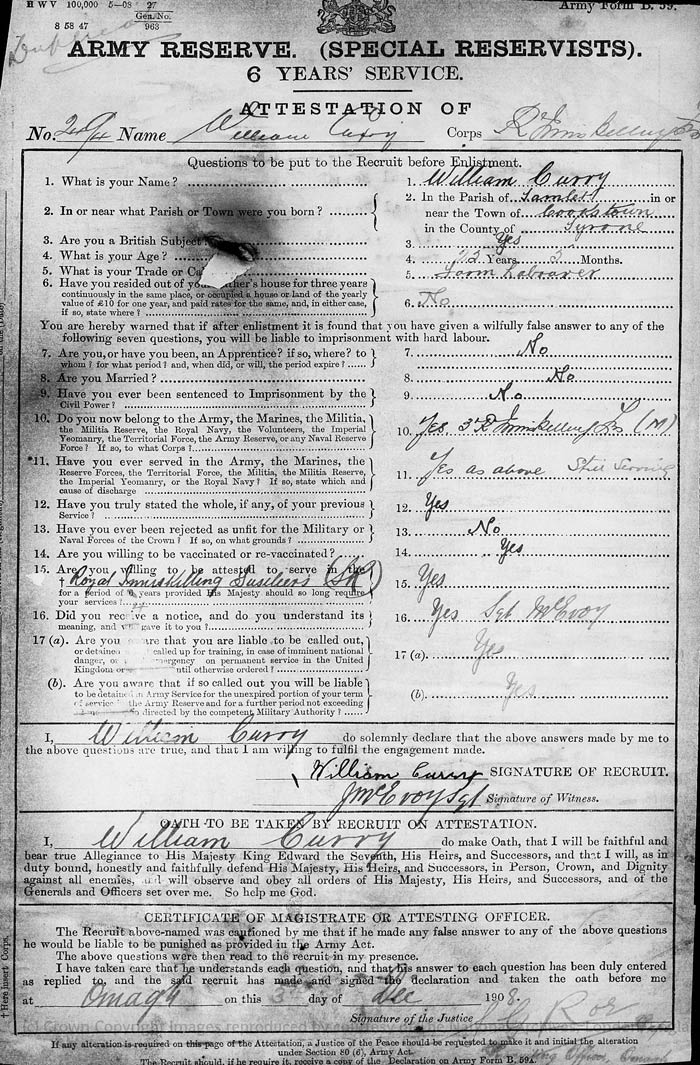 H W V 100,000 5—08 27
Army Form B. 59.
8 58 47 Gen. No. 963
ARMY RESERVE. (SPECIAL RESERVISTS).
6 YEARS' SERVICE.
ATTESTATION OF
No. Name William Curry Corps R Inniskilling Fus
Questions to be put to the Recruit before Enlistment.
1. What is your Name? 1. William Curry
2. In or near what Parish or Town were you born? 2. In the Parish of in or
near the Town of Cookstown
in the County of Tyrone
3. Are you a British Subject? 3. Yes
4. What is your Age? 4. Years 3 Months.
5. What is your Trade or 5. Farm Labourer
6. Have you resided out of your Father's house for three years
continuously in the same place, or occupied a house or land of the yearly
value of £10 for one year, and paid rates for the same, and, in either case,
if so, state where? 6. No
You are hereby warned that if after enlistment it is found that you have given a wilfully false answer to any of the
following seven questions, you will be liable to imprisonment with hard labour.
7. Are you, or have you been, an Apprentice? if so, where? to
whom? for what period? and, when did, or will, the period expire? 7. No
8. Are you Married? 8. No
9. Have you ever been sentenced to Imprisonment by the
Civil Power? 9. No
10. Do you now belong to the Army, the Marines, the Militia,
the Militia Reserve, the Royal Navy, the Volunteers, the Imperial
Yeomanry, the Territorial Force, the Army Reserve, or any Naval Reserve
Force? If so, to what Corps? 10. Yes 3 R Inniskilling Fus (M)
*11. Have you ever served in the Army, the Marines, the
Reserve Forces, the Territorial Force, the Militia, the Militia Reserve,
the Imperial Yeomanry, or the Royal Navy? If so, state which and
cause of discharge 11. Yes as above Still Serving
12. Have you truly stated the whole, if any, of your previous
Service? 12. Yes
13. Have you ever been rejected as unfit for the Military or
Naval Forces of the Crown? If so, on what grounds? 13. No
14. Are you willing to be vaccinated or re-vaccinated? 14. Yes
15. Are you willing to be attested to serve in the
† Royal Inniskilling Fusiliers (SR)
for a period of 6 years provided His Majesty should so long require
your services? 15. Yes
16. Did you receive a notice, and do you understand its
meaning, and who gave it to you? 16. Yes Sgt McEvoy
17 (a). Are you aware that you are liable to be called out,
or detained called up for training, in case of imminent national
danger, or emergency on permanent service in the United
Kingdom or until otherwise ordered? 17 (a). Yes
(b). Are you aware that if so called out you will be liable
to be detained in Army Service for the unexpired portion of your term
of service in the Army Reserve and for a further period not exceeding
so directed by the competent Military Authority? (b). Yes
I, William Curry do solemnly declare that the above answers made by me to
the above questions are true, and that I am willing to fulfil the engagement made.
William Curry SIGNATURE OF RECRUIT.
J McEvoy Sgt Signature of Witness.
OATH TO BE TAKEN BY RECRUIT ON ATTESTATION.
I, William Curry do make Oath, that I will be faithful and
bear true Allegiance to His Majesty King Edward the Seventh, His Heirs, and Successors, and that I will, as in
duty bound, honestly and faithfully defend His Majesty, His Heirs, and Successors, in Person, Crown, and Dignity
against all enemies, and will observe and obey all orders of His Majesty, His Heirs, and Successors, and of the
Generals and Officers set over me. So help me God.
CERTIFICATE OF MAGISTRATE OR ATTESTING OFFICER.
The Recruit above-named was cautioned by me that if he made any false answer to any of the above questions
he would be liable to be punished as provided in the Army Act.
The above questions were then read to the recruit in my presence.
I have taken care that he understands each question, and that his answer to each question has been duly entered
as replied to, and the said recruit has made and signed the declaration and taken the oath before me
at Omagh on this day of Dec 1908.
Signature of the Justice
† Here insert Corps.
If any alteration is required on this page of the Attestation, a Justice of the Peace should be requested to make it and initial the alteration
under Section 80 (6), Army Act.
The Recruit should, if he require it, receive a copy of the Declaration on Army Form B. 59A.